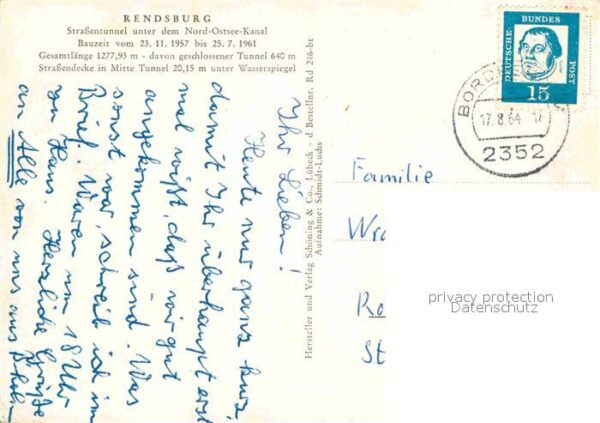 RENDSBURG
Straßentunnel unter dem Nord-Ostsee-Kanal
Bauzeit vom 23. 11. 1957 bis 25. 7. 1961
Gesamtlänge 1277,93 m - davon geschlossener Tunnel 640 m
Straßendecke in Mitte Tunnel 20,15 m unter Wasserspiegel
Ihr Lieben!
Heute nur ganz kurz,
damit Ihr überhaupt erst
mal wißt, daß wir gut
angekommen sind. Was
sonst war, schreib ich im
Brief. Waren um 18 Uhr
zu Haus. Herzliche Grüße
an Alle von uns aus
Hersteller und Verlag Schöning & Co., Lübeck - d Bestellnr. Rd 246-bt
Aufnahme: Schmidt-Luchs
DEUTSCHE
BUNDES
POST
15
17.8.64
2352
Familie
Wr
Ro
St
privacy protection
Datenschutz